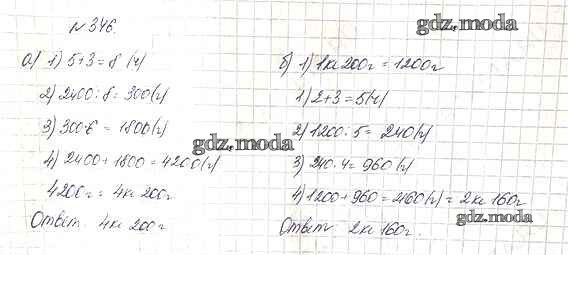 № 346.
gdz.moda
а) 1) 5+3=8 (ч)
2) 2400:8=300(г)
3) 300·6=1800(г)
4) 2400+1800=4200(г)
4200г=4кг 200г
Ответ: 4кг 200г
gdz.moda
б) 1) 1кг 200г=1200г
1) 2+3=5(ч)
2) 1200:5=240(г)
3) 240·4=960(г)
4) 1200+960=2160(г)=2кг 160г
gdz.moda
Ответ: 2кг 160г.